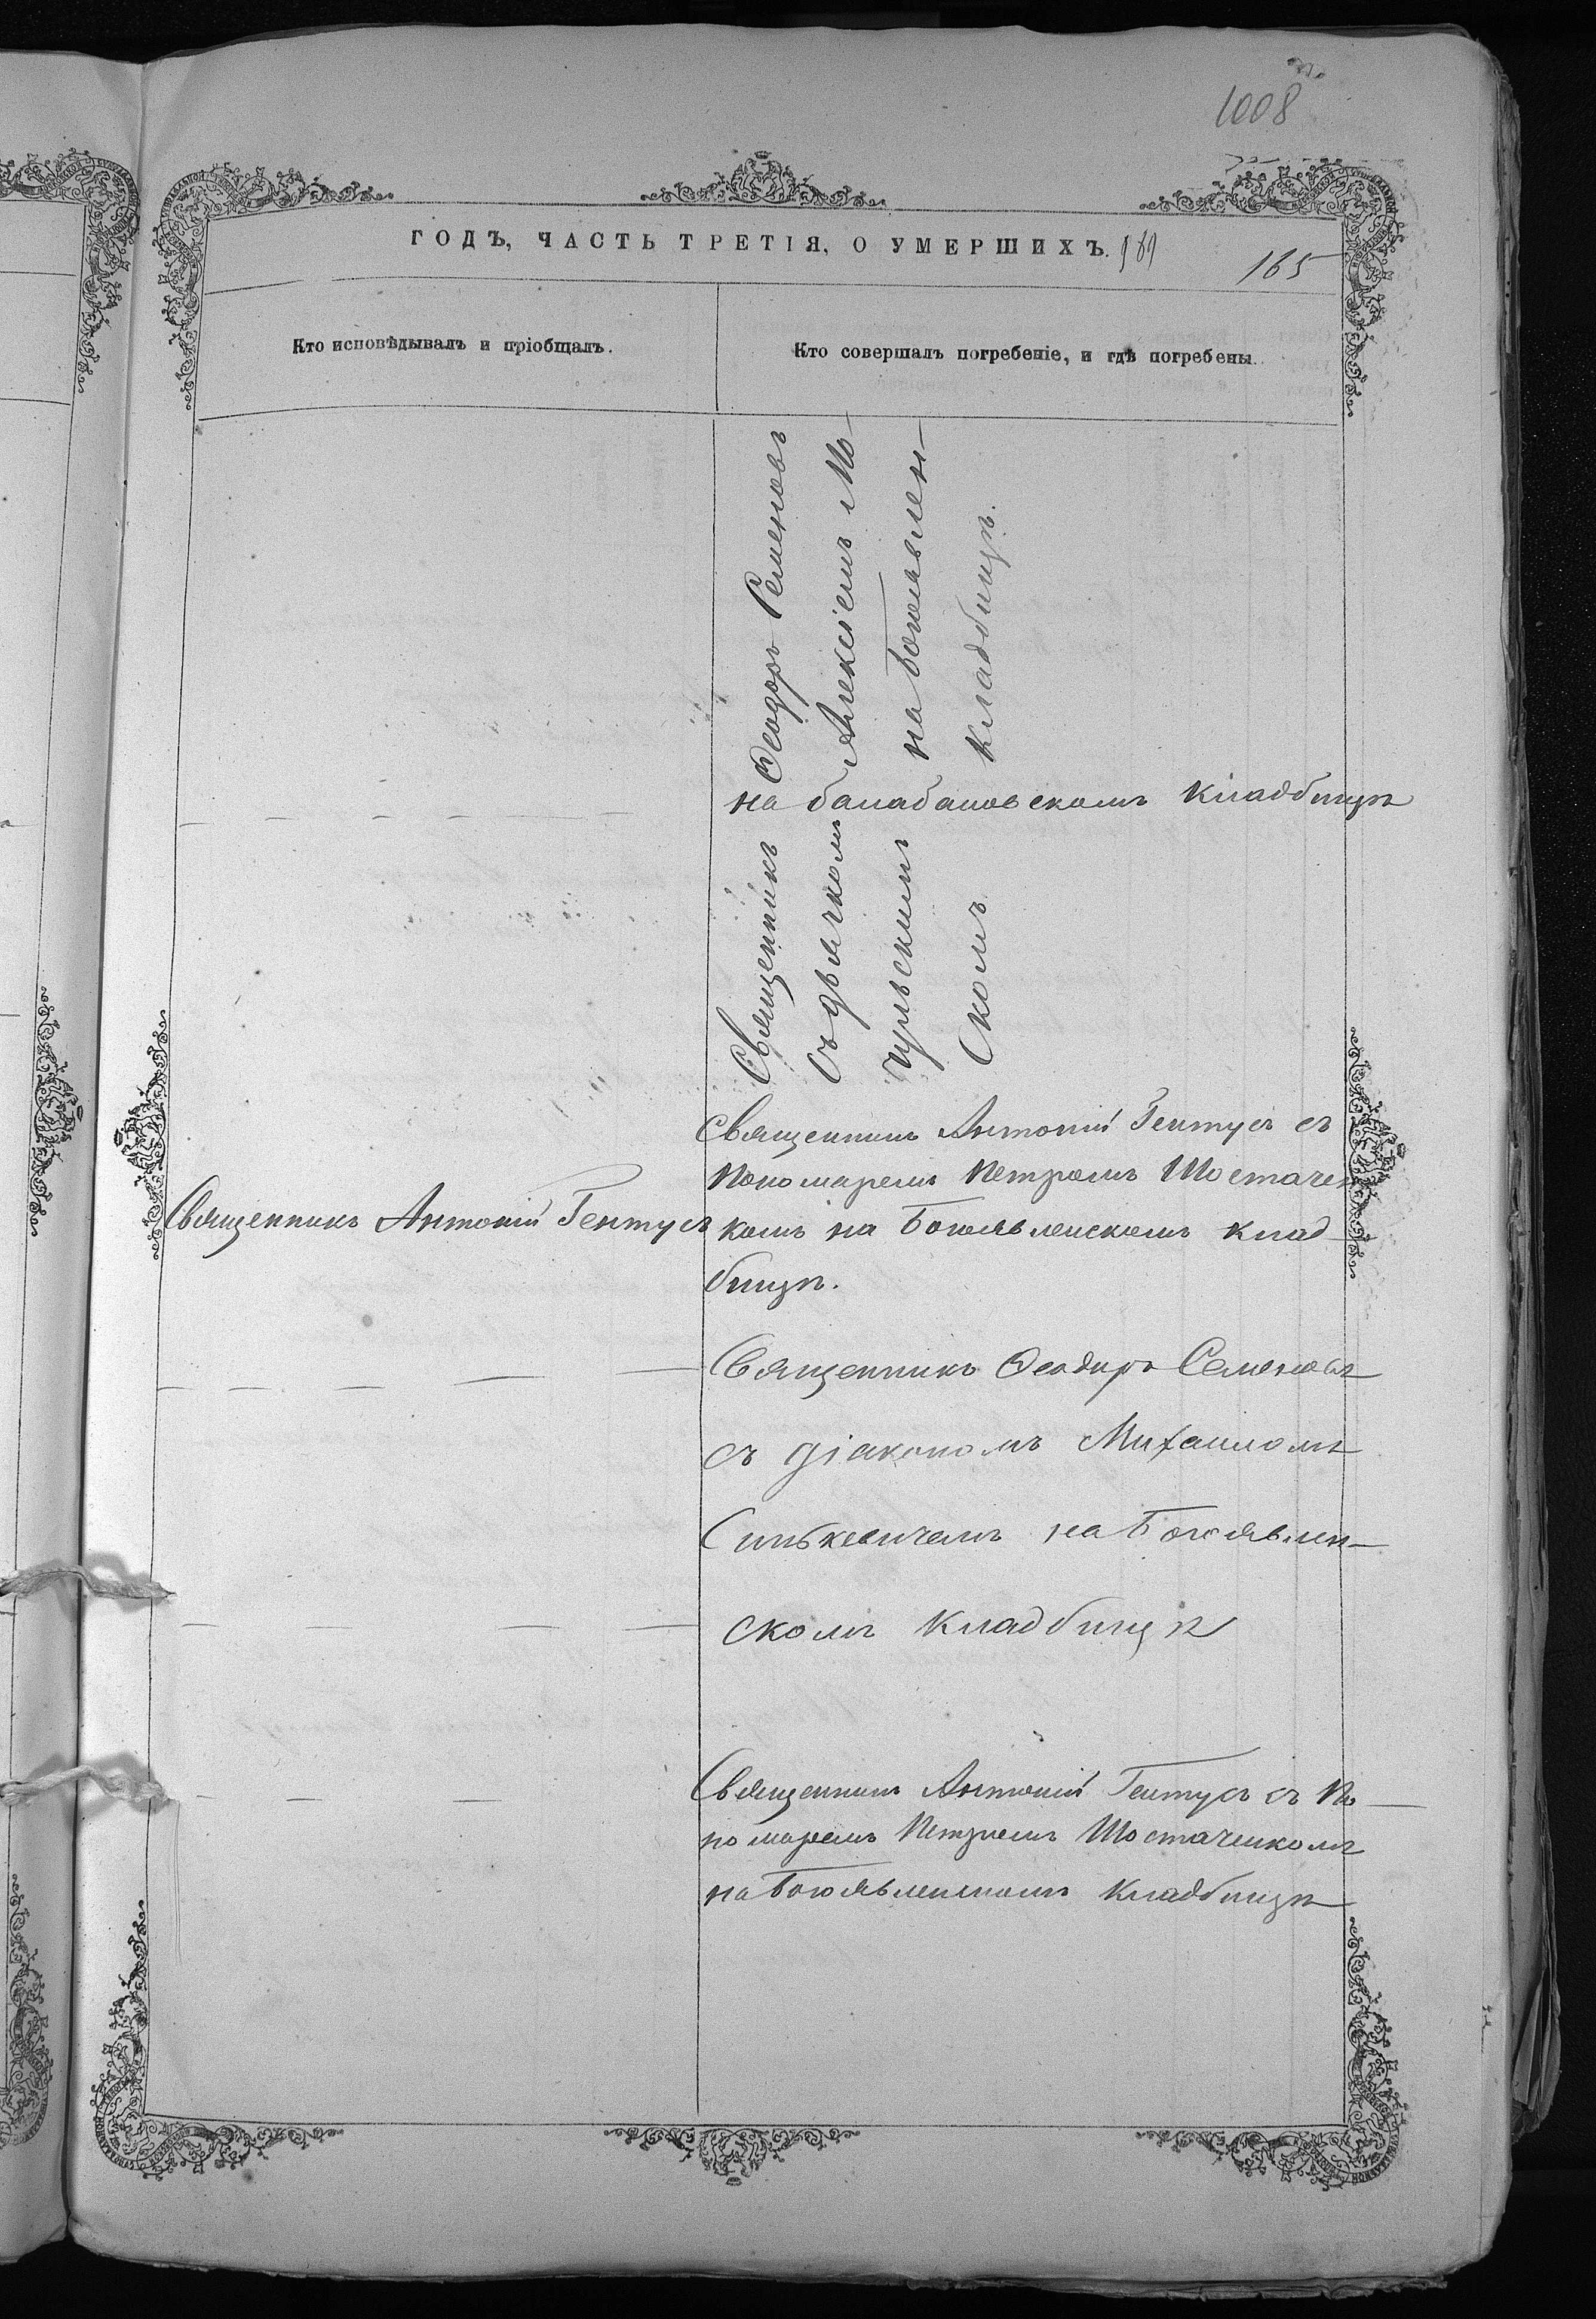 1008
ГОДЪ, ЧАСТЬ ТРЕТІЯ, О УМЕРШИХЪ. 989
165
Кто исповѣдывалъ и пріобщалъ.
Кто совершалъ погребеніе, и гдѣ погребены.
Священникъ Ѳеодоръ Семеновъ
съ дьячкомъ Алексіемъ Мо-
чульскимъ на Богоявлен-
скомъ кладбищѣ.
на балабановскомъ кладбищѣ
Священникъ Антоній Гентусъ съ
Пономаремъ Петромъ Шостачен
Священникъ Антоній Гентусъ
комъ на Богоявленскомъ клад-
бищѣ.
Священникъ Ѳеодоръ Семеновъ
съ діакономъ Михаиломъ
Синькевичемъ на Богоявлен-
скомъ кладбищѣ
Священникъ Антоній Гентусъ съ По-
номаремъ Петромъ Шостаченкомъ
на Богоявленскомъ кладбищѣ